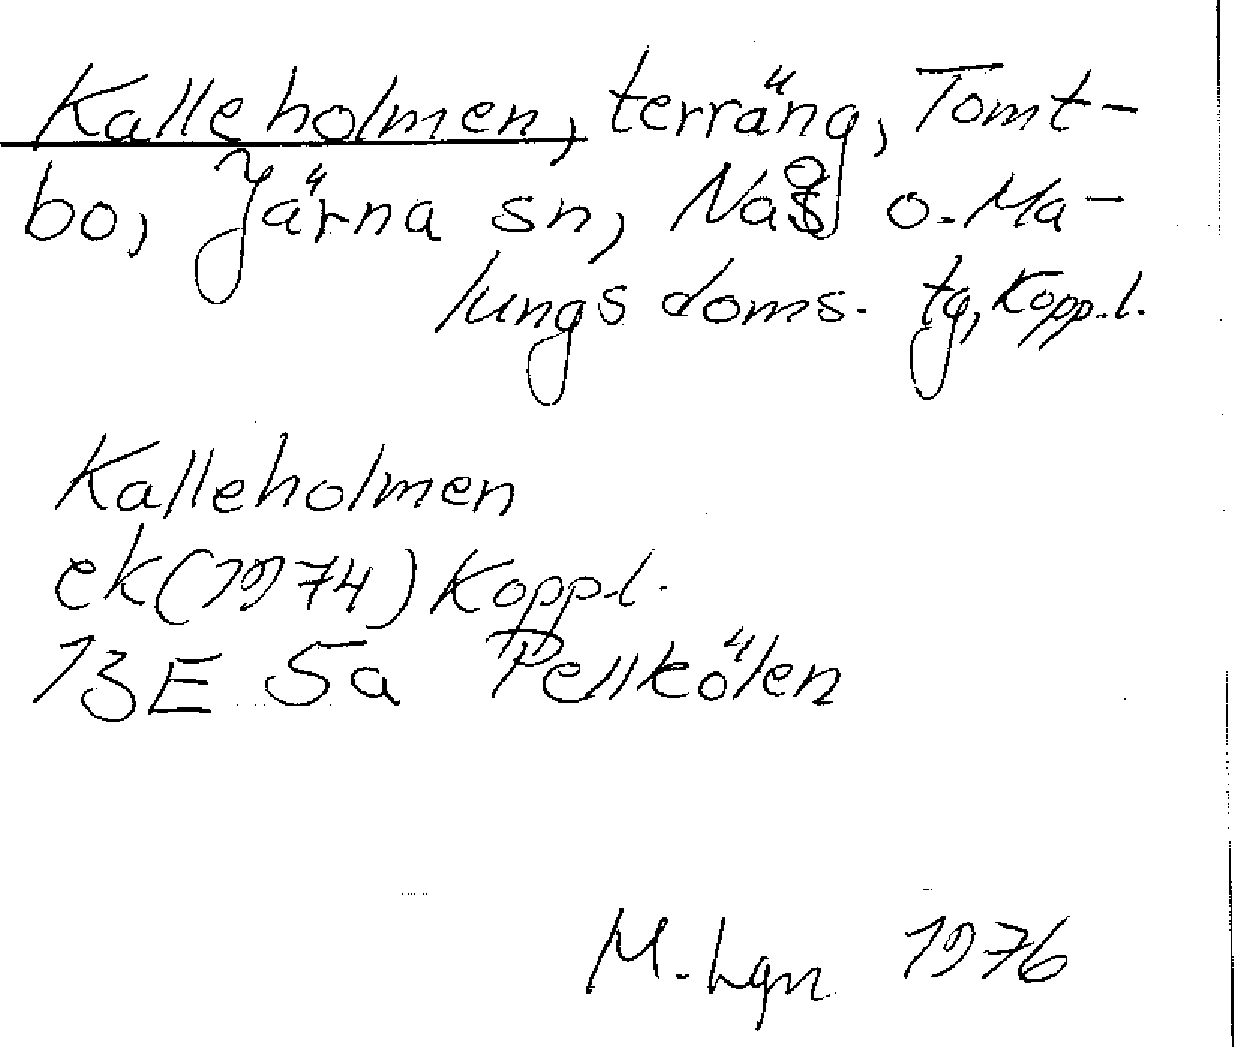 Kalleholmen, terräng, Tomt-
bo, Järna sn, Nås o. Ma-
lungs doms. tg, Kopp.l.
Kalleholmen
ek(1974) Kopp.l.
13E 5a Pellkölen
M. Lgn 1976